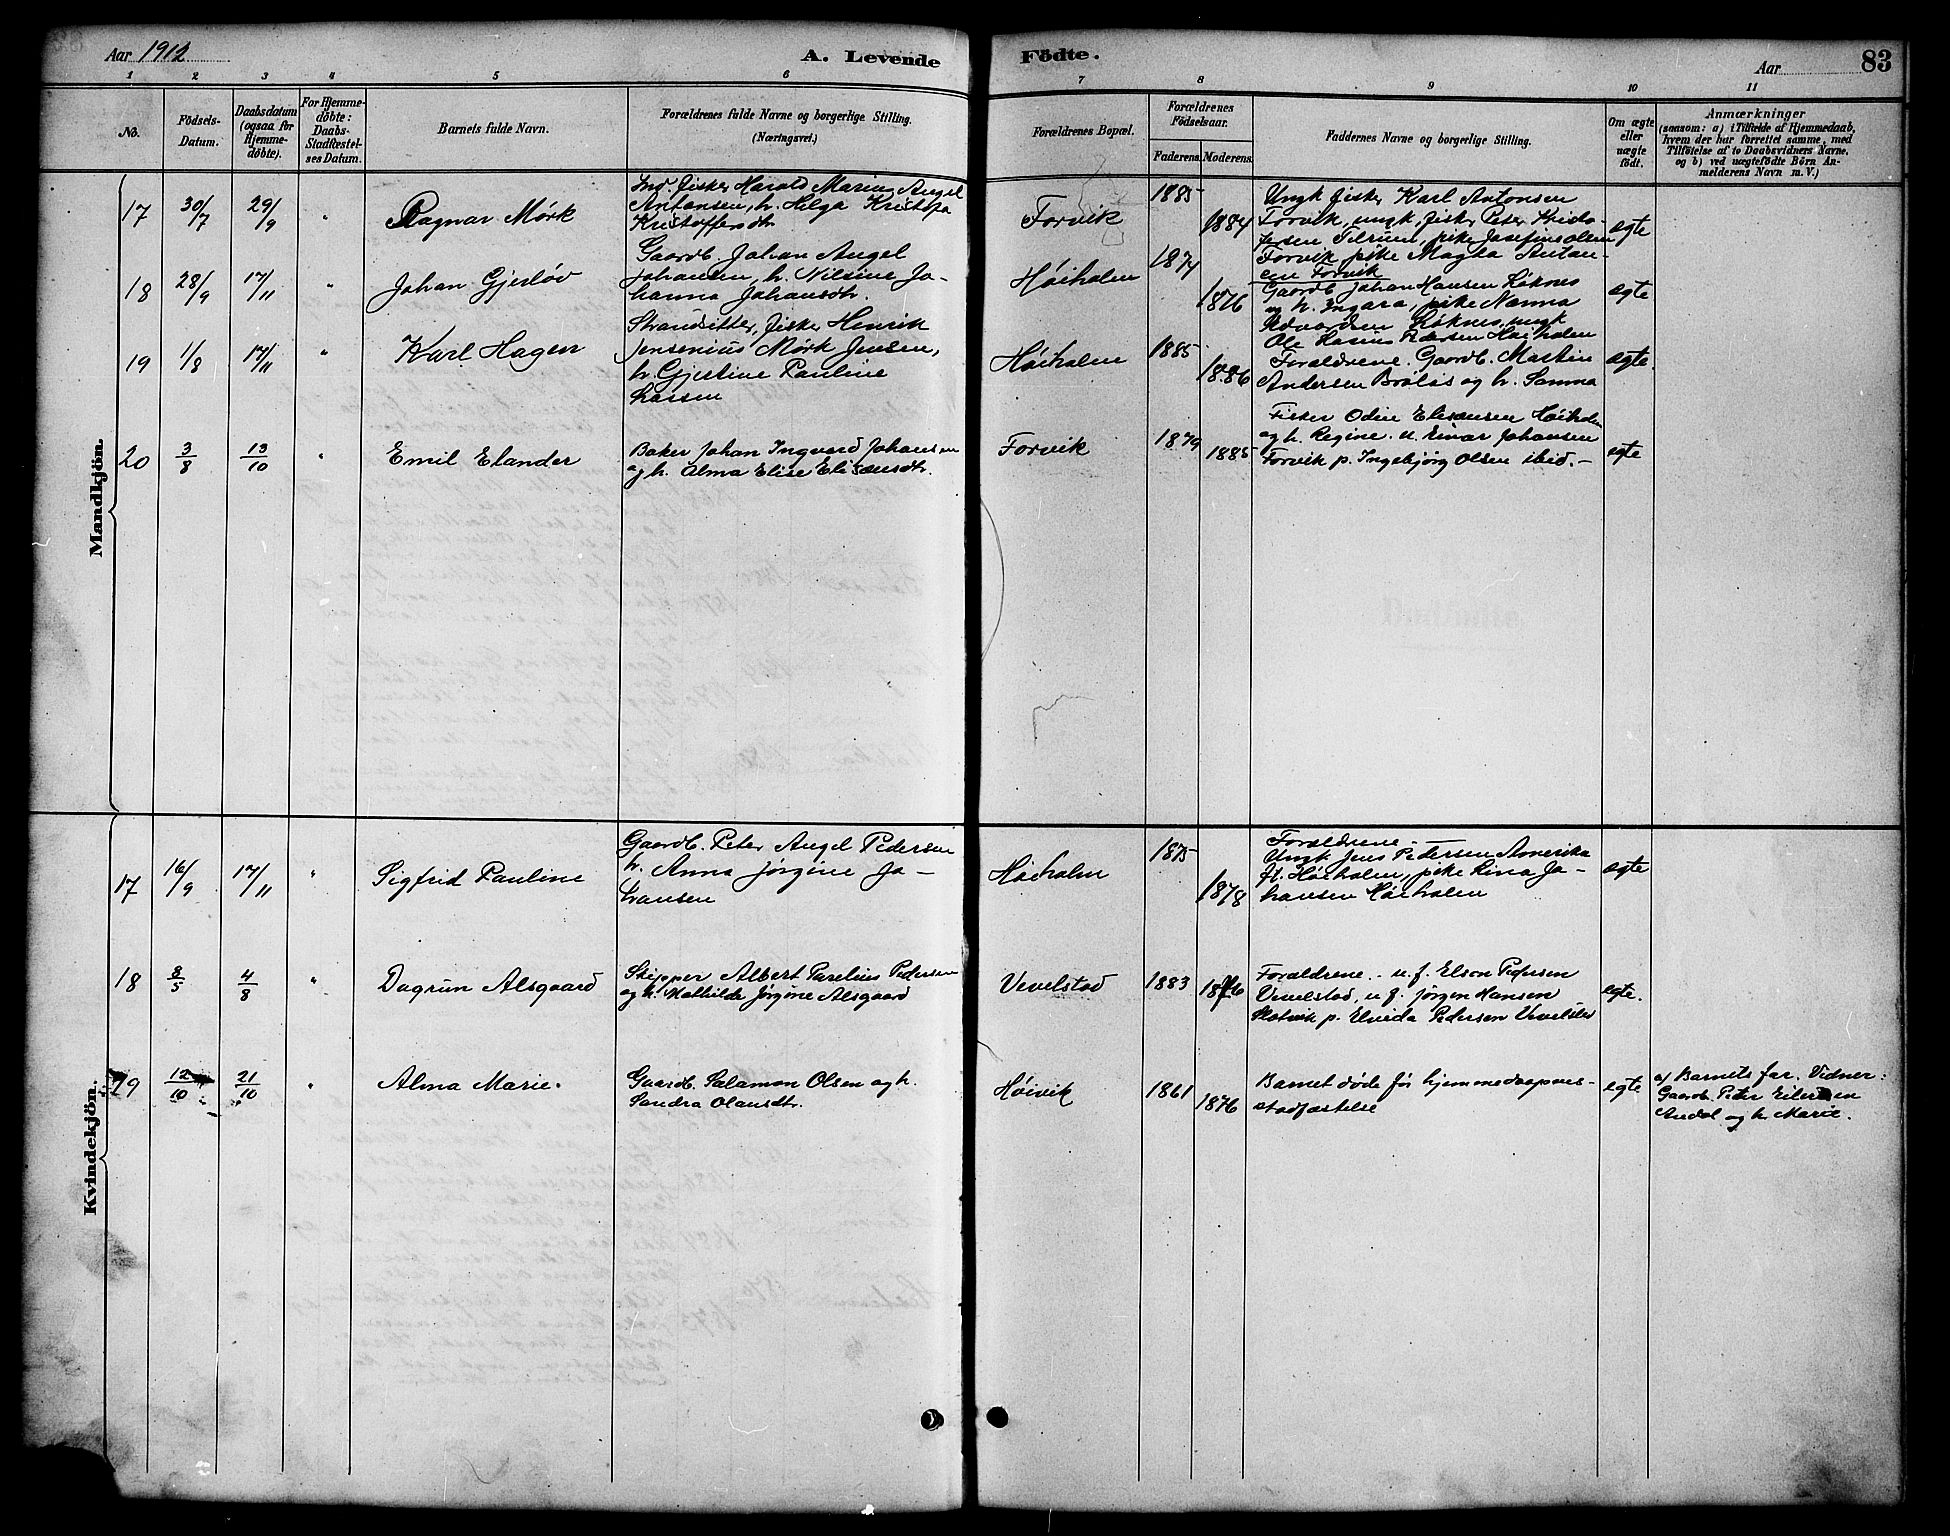 Aar 1912
A. Levende
Födte.
Aar
83
1 2 3 4 5 6 7 8 9 10 11
No.
Födsels-
Datum.
Daabsdatum
(ogsaa for
Hjemme-
døbte).
For Hjemme-
döbte:
Daabs-
Stadfæstel-
ses Datum.
Barnets fulde Navn.
Forældrenes fulde Navne og borgerlige Stilling.
(Næringsvei.)
Forældrenes Bopæl.
Forældrenes
Födselsaar.
Faderens. Moderens.
Faddernes Navne og borgerlige Stilling.
Om ægte
eller
uægte
födt.
Anmærkninger
(saasom: a) i Tilfælde af Hjemmedaab,
hvem der har forrettet samme, med
Tilföielse af to Daabsvidners Navne,
og b) ved uægtefödte Börn An-
melderens Navn m. V.)
Mandkjön.
17 30/7 29/9 " Ragnar Mörk
Ind. fisker Harald Marius Angel
Antonsen, h. Helga Kristofa
Kristoffersdtr
Forvik 1885 1884
Ungk fisker Karl Antonsen
Forvik, ungk. fisker Peter Kristo-
fersen Tilrum, pike Josefine Olsen
Forvik, pike Magta Anton-
sen Forvik
egte
18 28/9 17/11 " Johan Gjerløv
Gaardb. Johan Angel
Johansen, h. Nilsine Jo-
hanna Johansdtr.
Høiholm 1874 1876
Gaardb Johan Hansen Løknes
og h. Ingara, pike Nanna
Edvardsen Løknes, ungk
Ole Hasius Pedersen Høiholm
egte
19 1/8 17/11 " Karl Hagen
Strandsitter, fisker Henrik
Jensenius Mørk Jensen,
h. Gjertine Pauline
Larsen
Høiholm 1885 1886
Forældrene. Gaardb. Martin
Andersen Braløs og h. Samna
egte.
20 3/8 13/10 " Emil Elander
Baker Johan Ingvard Johansen
og h. Alma Elise Elisæusdtr.
Forvik 1879 1885
Fisker Odin Elisæusen Høiholm
og h. Regine. u. Einar Johansen
Forvik p. Ingebjørg Olsen ibid. –
egte
Kvindekjön.
17 16/9 17/11 " Sigfrid Pauline
Gaardb. Peter Angel Pedersen
h. Anna Jørgine Jo-
hansen
Høiholm 1875 1878
Forældrene. –
Ungk Jens Pedersen Amerika
ft. Høiholm, pike Lina Jo-
hansen Høiholm
egte
18 8/5 4/8 " Dagrun Alsgaard
Skipper Albert Parelius Pedersen
og h. Mathilde Jørgine Alsgaard
Vevelstad 1883 1876
Forældrene. – u. f. Elson Pedersen
Vevelstad, u f. Jørgen Hansen
Slotvik p. Elvida Pedersen Vevelstad
egte.
19 12/10 21/10 " Alma Marie.
Gaardb. Salamon Olsen og h.
Sandra Olausdtr.
Høivik 1861 1876
Barnet døde før hjemmedaapens-
stadfæstelse
egte
a) Barnets far. Vidner:
Gaardb. Peter Eilersen
Andal og h. Marie.